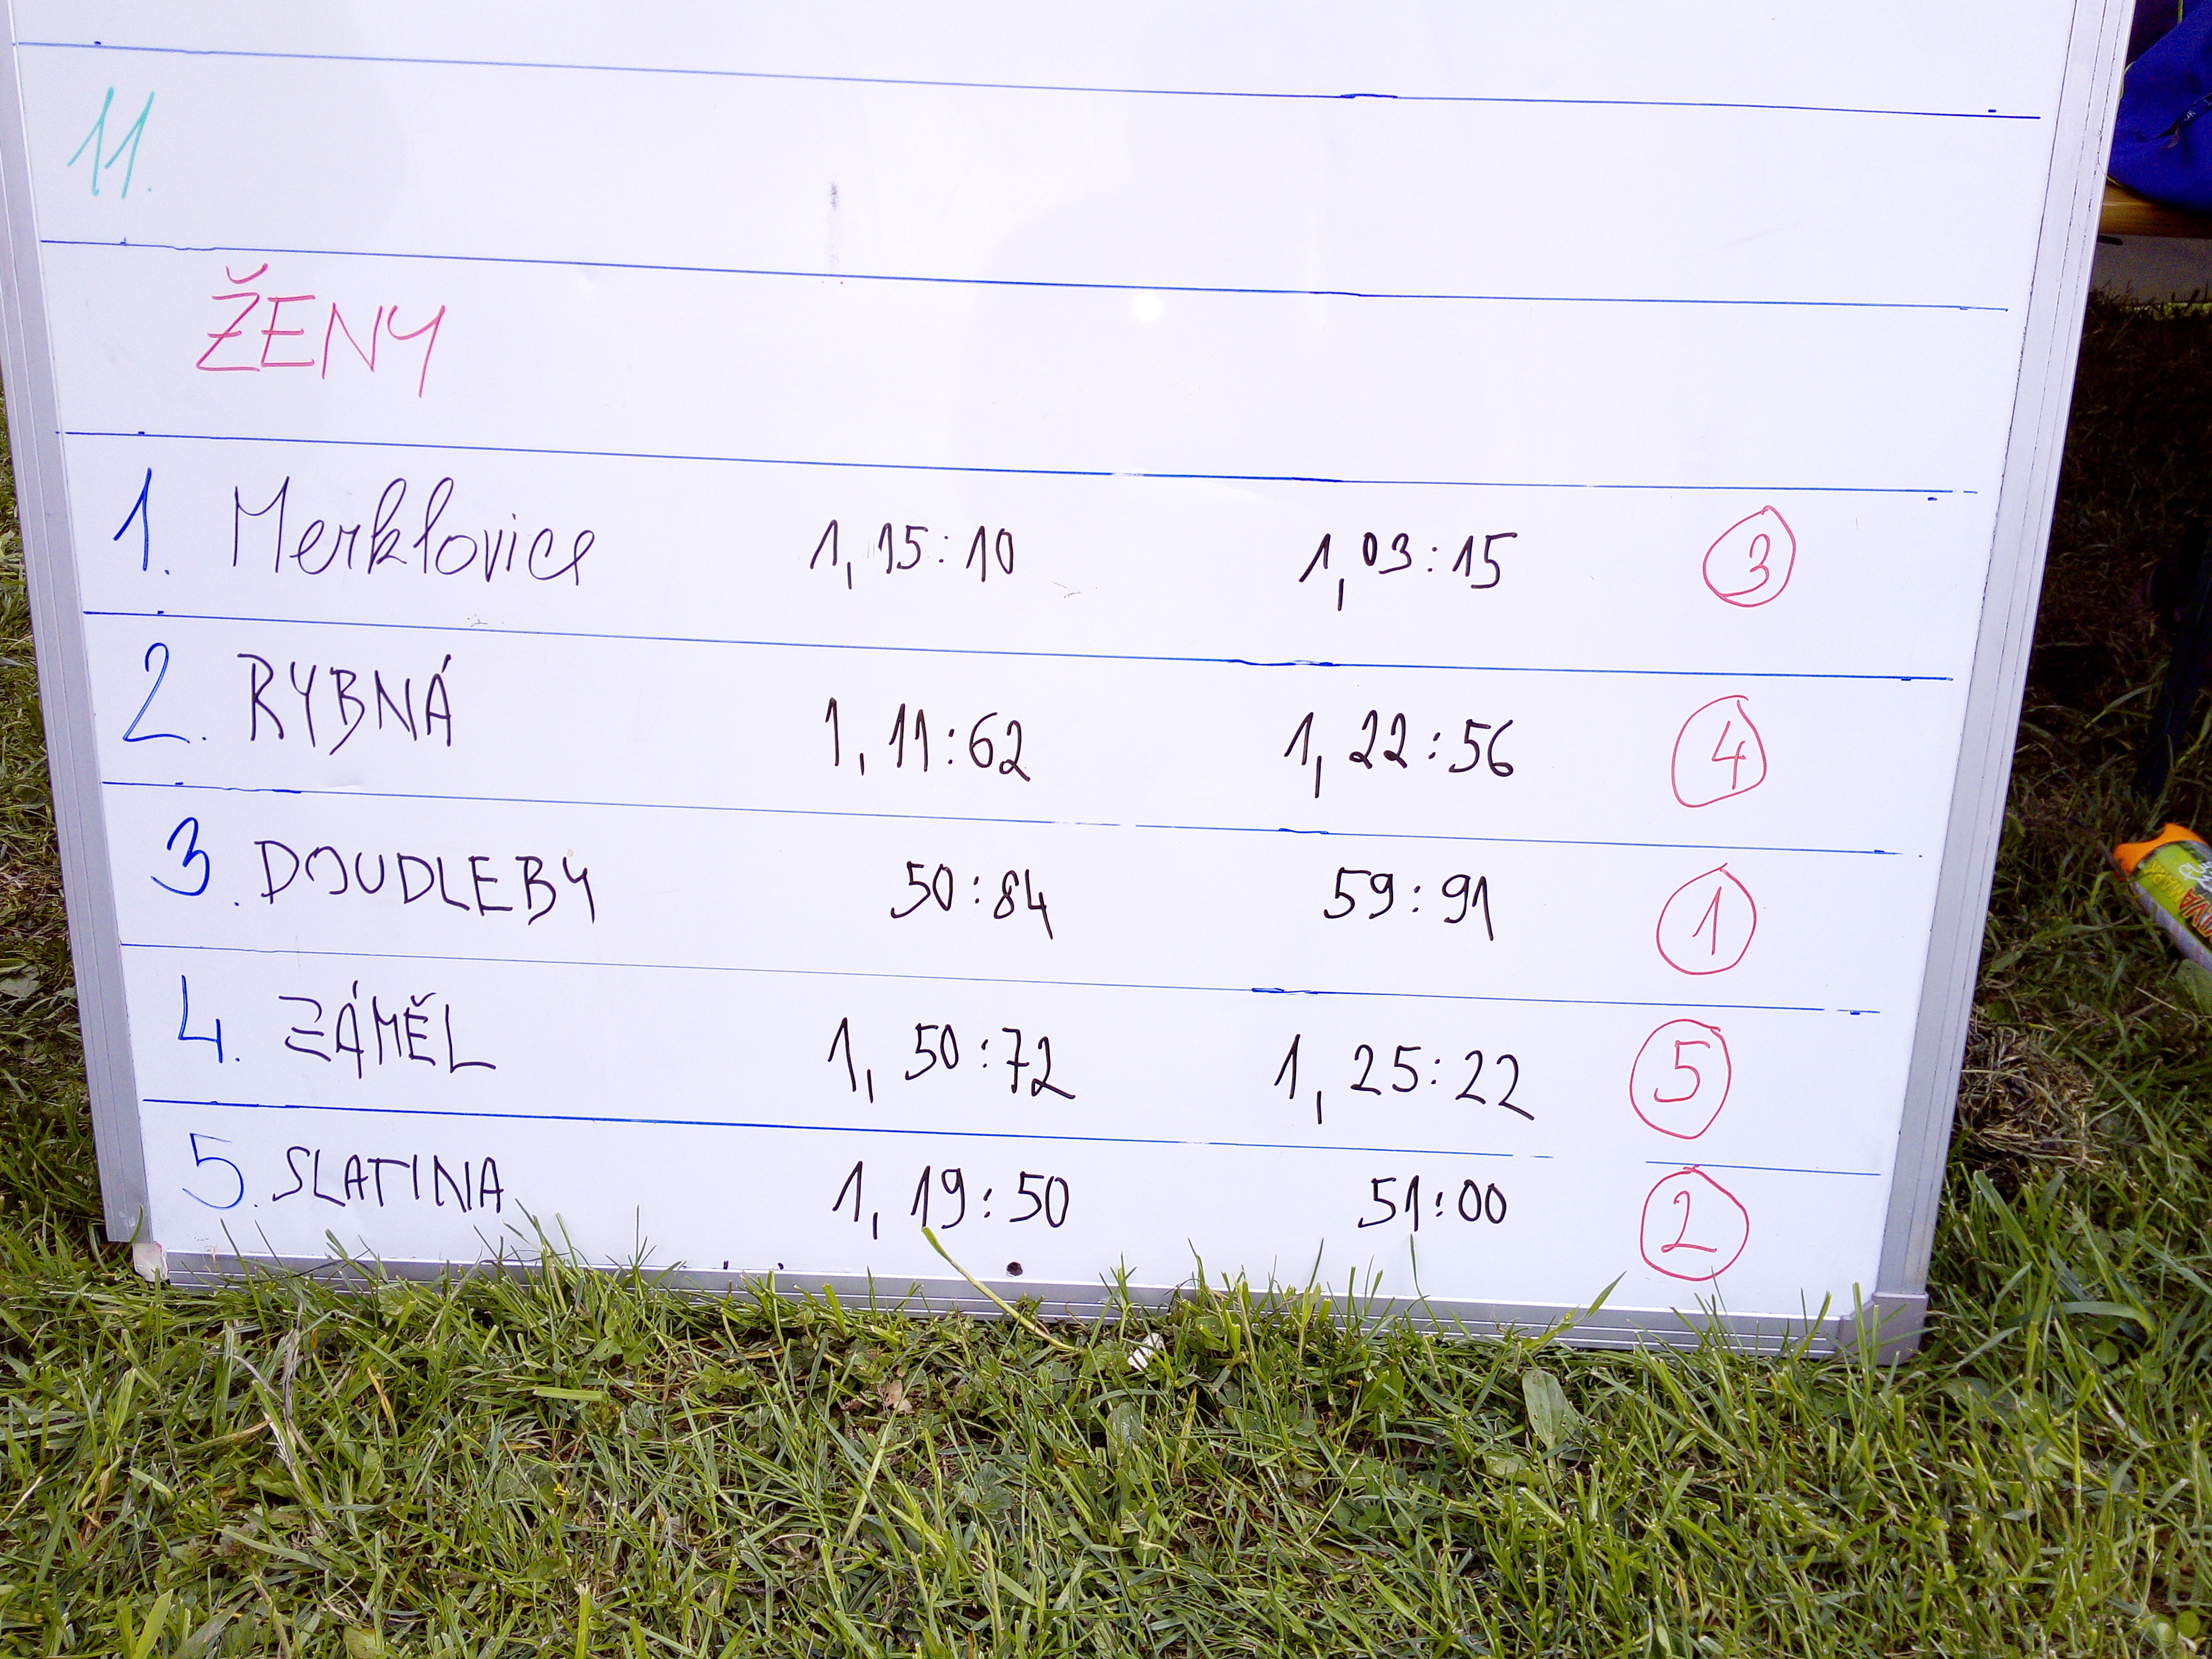 11.
ŽENY
1. Merklovice 1,15:10 1,03:15 3
2. RYBNÁ 1,11:62 1,22:56 4
3. DOUDLEBY 50:84 59:91 1
4. ZÁMĚL 1,50:72 1,25:22 5
5. SLATINA 1,19:50 51:00 2